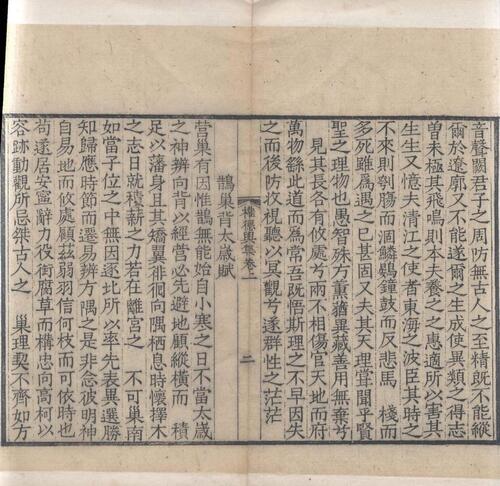 音聲闕君子之周防無古人之至精旣不能縱
爾於遼廓又不能遂爾之生成使異類之得志
曾未極其飛鳴則本夫養之之惠適所以害其
生生又憶夫清江之使者東海之波臣其時之
不來則刳腸而涸鱗鷄鐘鼓而反悲馬 棧而
多死雖爲遇之已甚固又夫其天理聳聞乎賢
聖之理物也愚智殊方薰蕕異藏善用無棄兮
見其長各有攸處兮兩不相傷官天地而府
萬物繇此道而爲常吾旣悟斯理之不早因失
之而後防收視聽以冥觀兮遂群性之茫茫
權德輿集卷一
二
鵲巢背太歲賦
營巢有因惟鵲無能始自小寒之日不當太歲
之神辨向背以經營必先避地顧縱橫而 積
足以藩身且其矯翼徘徊向隅栖息時懷擇木
之志日就積薪之力若在離宮之 不可巢南
如當子位之中無因逐北所以率先表異選勝
知歸應時節而遷易辨方隅之是非念彼明神
自易地而攸處顧茲弱羽信何枝而可依時也
苟遂居安寧辭力役銜腐草而構忠向高柯以
容跡動觀所忌桀古人之 巢理契不齊如方